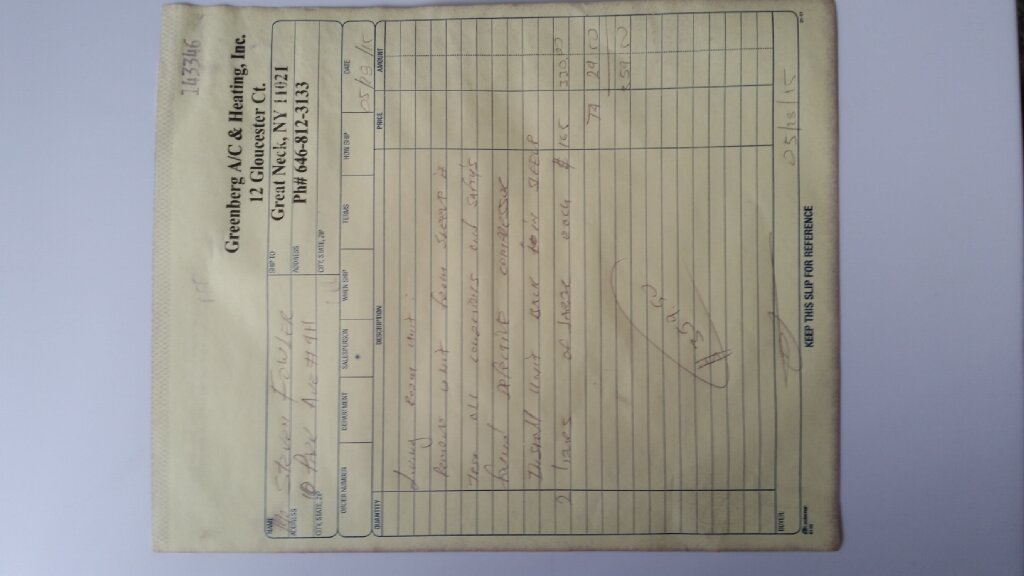 143346
Greenberg A/C & Heating, Inc.
12 Gloucester Ct.
Great Neck, NY 11021
Ph# 646-812-3133
NAME
Steven Fowler
SHIP TO
ADDRESS
10 Park Ave #
ADDRESS
CITY, STATE, ZIP
CITY, STATE, ZIP
ORDER NUMBER DEPARTMENT SALESPERSON WHEN SHIP TERMS HOW SHIP DATE
05/13/15
QUANTITY DESCRIPTION PRICE AMOUNT
Living Room Unit:
Remove unit from sleeve
Test all and
Found defective compressor
Install unit back to in sleeve
2 hours of labor each $165 330.00
29 50
359 50
05/13/15
BUYER
KEEP THIS SLIP FOR REFERENCE